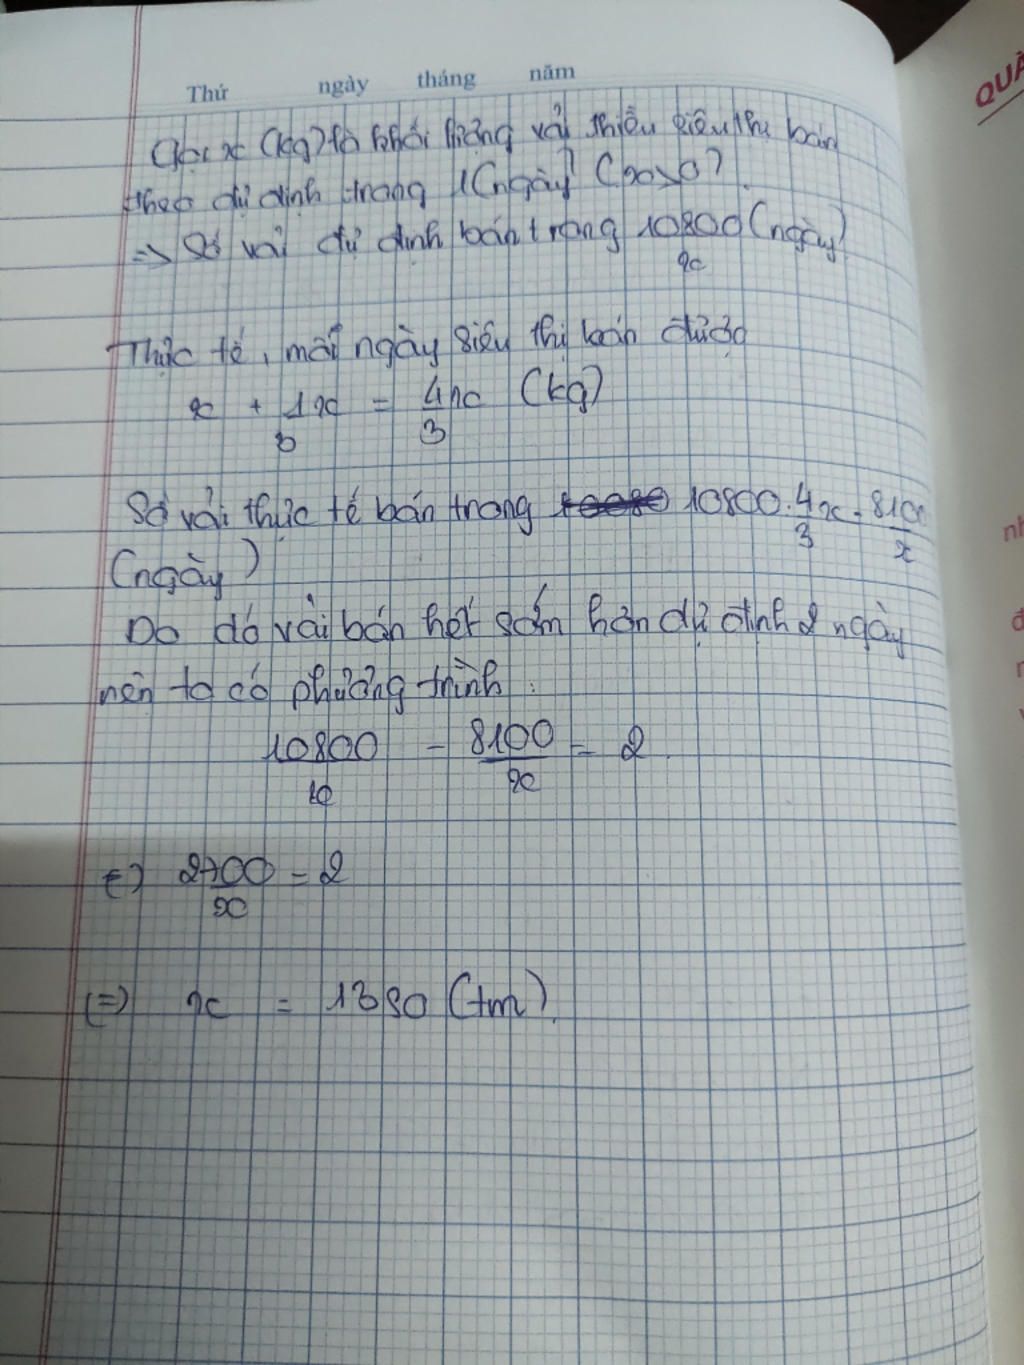 Thứ ngày tháng năm
Gọi x (kg) là khối lượng vải thiều siêu thị bán
theo dự định trong 1 (ngày) (x>0)
=> Số vải dự định bán trong 10800/x (ngày)
Thực tế, mỗi ngày siêu thị bán được
x + 1/3 x = 4/3 x (kg)
Số vải thực tế bán trong 10800 . 4/3 x = 8100/x
(ngày)
Do đó vải bán hết sớm hơn dự định 2 ngày
nên ta có phương trình :
10800/x - 8100/x = 2
<=> 2700/x = 2
<=> x = 1350 (tm)
QUẢ